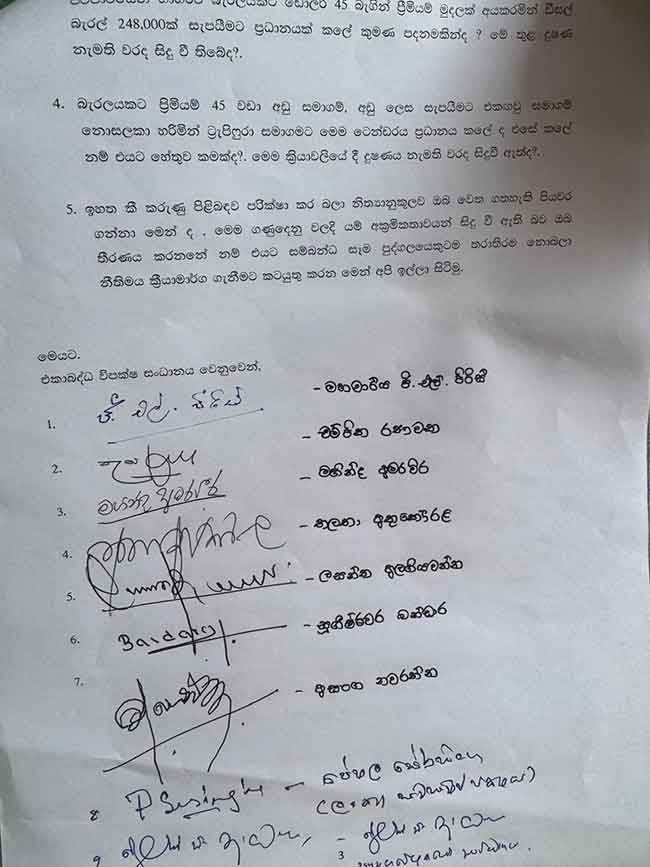 බැරල් 248,000ක් සැපයීමට ප්‍රධානයක් කලේ කුමණ පදනමකින්ද ? මේ තුළ දුෂණ
නැමති වරද සිදු වී තිබේද?.
4. බැරලයකට ප්‍රිමියම් 45 වඩා අඩු සමාගම්, අඩු ලෙස සැපයීමට එකඟවු සමාගම්
නොසලකා හරිමින් ට්‍රැපිෆුරා සමාගමට මෙම ටෙන්ඩරය ප්‍රධානය කලේ ද එසේ කලේ
නම් එයට හේතුව කමක්ද?. මෙම ක්‍රියාවලියේ දී දුෂණය නැමති වරද සිදුවී ඇත්ද?.
5. ඉහත කී කරුණු පිළිබඳව පරික්ෂා කර බලා නිත්‍යානුකුලව ඔබ වෙත ගතහැකි පියවර
ගන්නා මෙන් ද , මෙම ගණුදෙනු වලදී යම් අක්‍රමිකතාවයන් සිදු වී ඇති බව ඔබ
තීරණය කරනනේ නම් එයට සම්බන්ධ සෑම පුද්ගලයෙකුටම තරාතිරම නොබලා
නීතිමය ක්‍රියාමාර්ග ගැනීමට කටයුතු කරන මෙන් අපි ඉල්ලා සිටිමු.
මෙයට.
එකාබද්ධ විපක්ෂ සංධානය වෙනුවෙන්,
1. ජී. එල්. පීරිස් - මහාචාර්ය ජී. එල්. පීරිස්
2. - චම්පික රණවක
3. මහින්ද අමරවීර - මහින්ද අමරවීර
4. - තලතා අතුකෝරළ
5. - ලසන්ත අලගියවන්න
6. Bandara - සුගීෂ්වර බන්ඩාර
7. - අසංග නවරත්න
8 -
9